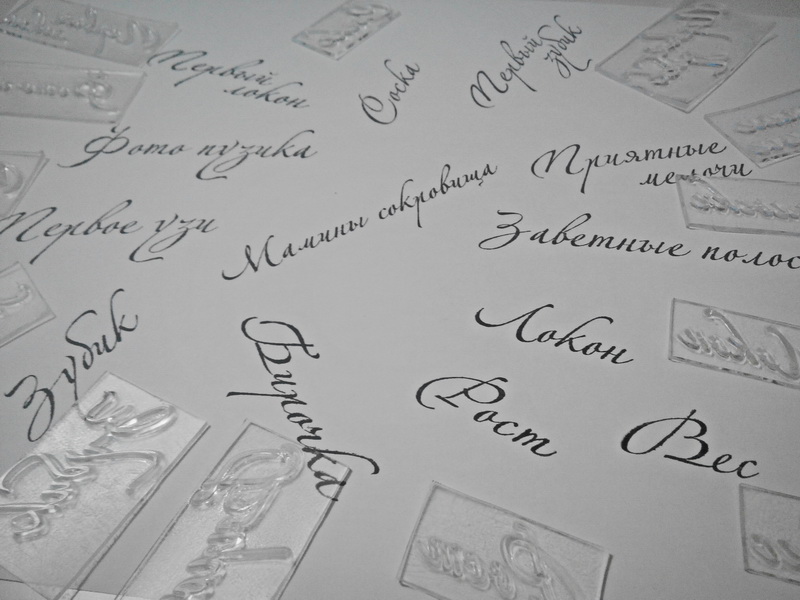 Первый
локон
Соска
Первый
зубик
Фото пузика
Приятные
мелочи
Первое узи
Мамины сокровища
Заветные полос
Зубик
Бирочка
Локон
Рост
Вес